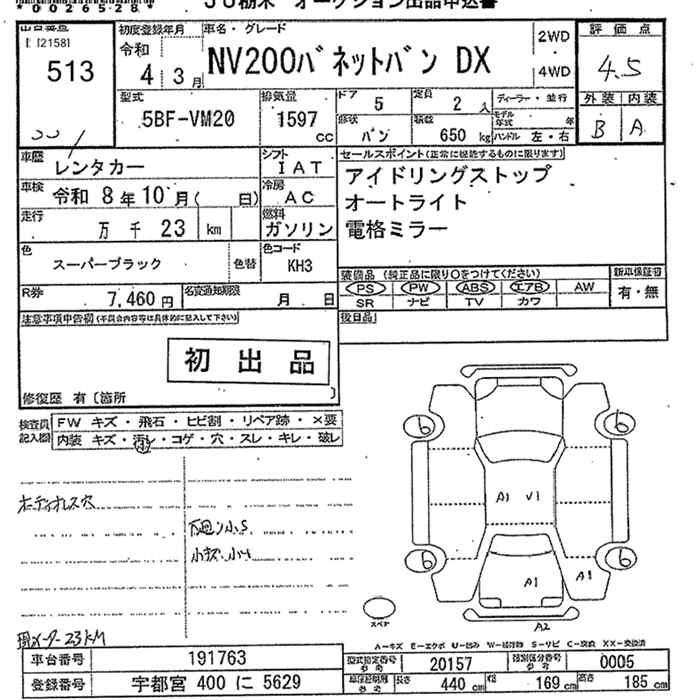 *0026528*
JU栃木 オークション出品申込書
出品番号
513
初度登録年月
令和
4 3月
車名・グレード
NV200バネットバン DX
2WD
4WD
評価点
4.5
外装 内装
B A
型式
5BF-VM20
排気量
1597 cc
ドア
5
定員
2 人
形状
バン
積載
650 kg
ディーラー・並行
モデル年式 年
ハンドル 左・右
車歴
レンタカー
シフト
IAT
車検
令和 8年10月( 日)
冷房
AC
走行
万 千 23 km
燃料
ガソリン
色
スーパーブラック
色替
色コード
KH3
R券
7,460円
名変通知期限
月 日
セールスポイント(正常に機能するものに限ります)
アイドリングストップ
オートライト
電格ミラー
装備品 (純正品に限り○をつけてください)
PS PW ABS エアB AW
SR ナビ TV カワ
新車保証書
有・無
注意事項申告欄(不具合内容等は具体的に記入して下さい)
初出品
修復歴 有〔箇所 〕
後日品
検査員記入欄
FW キズ・飛石・ヒビ割・リペア跡・×要
内装 キズ・汚レ・コゲ・穴・スレ・キレ・破レ
小
ボディオレス穴
下廻り小S
小キズ、小凹
6 6
A1 V1
6 6
A1 A1
A2
スペア
メーター23KM
A-キズ E-エクボ U-凹み W-補修跡 S-サビ C-腐食 XX-交換済
車台番号 191763
型式指定番号 参考 20157
類別区分番号 参考 0005
登録番号 宇都宮 400 に 5629
長さ 440 cm 幅 169 cm 高さ 185 cm